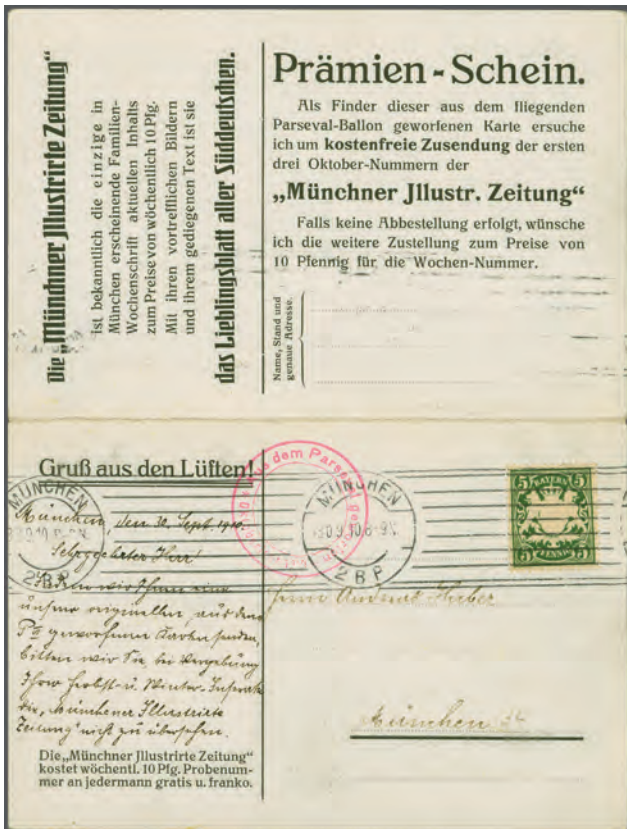 Die „Münchner Jllustrirte Zeitung“
ist bekanntlich die einzige in
München erscheinende Familien-
Wochenschrift aktuellen Inhalts
zum Preise von wöchentlich 10 Pfg.
Mit ihren vortrefflichen Bildern
und ihrem gediegenen Text ist sie
das Lieblingsblatt aller Süddeutschen.
Prämien-Schein.
Als Finder dieser aus dem fliegenden
Parseval-Ballon geworfenen Karte ersuche
ich um kostenfreie Zusendung der ersten
drei Oktober-Nummern der
„Münchner Jllustr. Zeitung“
Falls keine Abbestellung erfolgt, wünsche
ich die weitere Zustellung zum Preise von
10 Pfennig für die Wochen-Nummer.
Name, Stand und
genaue Adresse.
Gruß aus den Lüften!
München, den 30. Sept. 1910.
Sehrgeehrter Herr!
wir Ihnen eine
unserer originellen, aus dem
P III geworfenen Karten senden,
bitten wir Sie, bei Vergebung
Ihrer Herbst- u. Winter-Inserate
die „Münchener Illustrirte
Zeitung“ nicht zu übersehen.
Die „Münchner Jllustrirte Zeitung“
kostet wöchentl. 10 Pfg. Probenum-
mer an jedermann gratis u. franko.
Aus dem Parseval geworfen
MÜNCHEN
2 B.P.
MÜNCHEN
30.9.10.6-7N
2 B.P.
5 BAYERN 5
5 PFENNIG 5
Herrn Andreas Huber
München